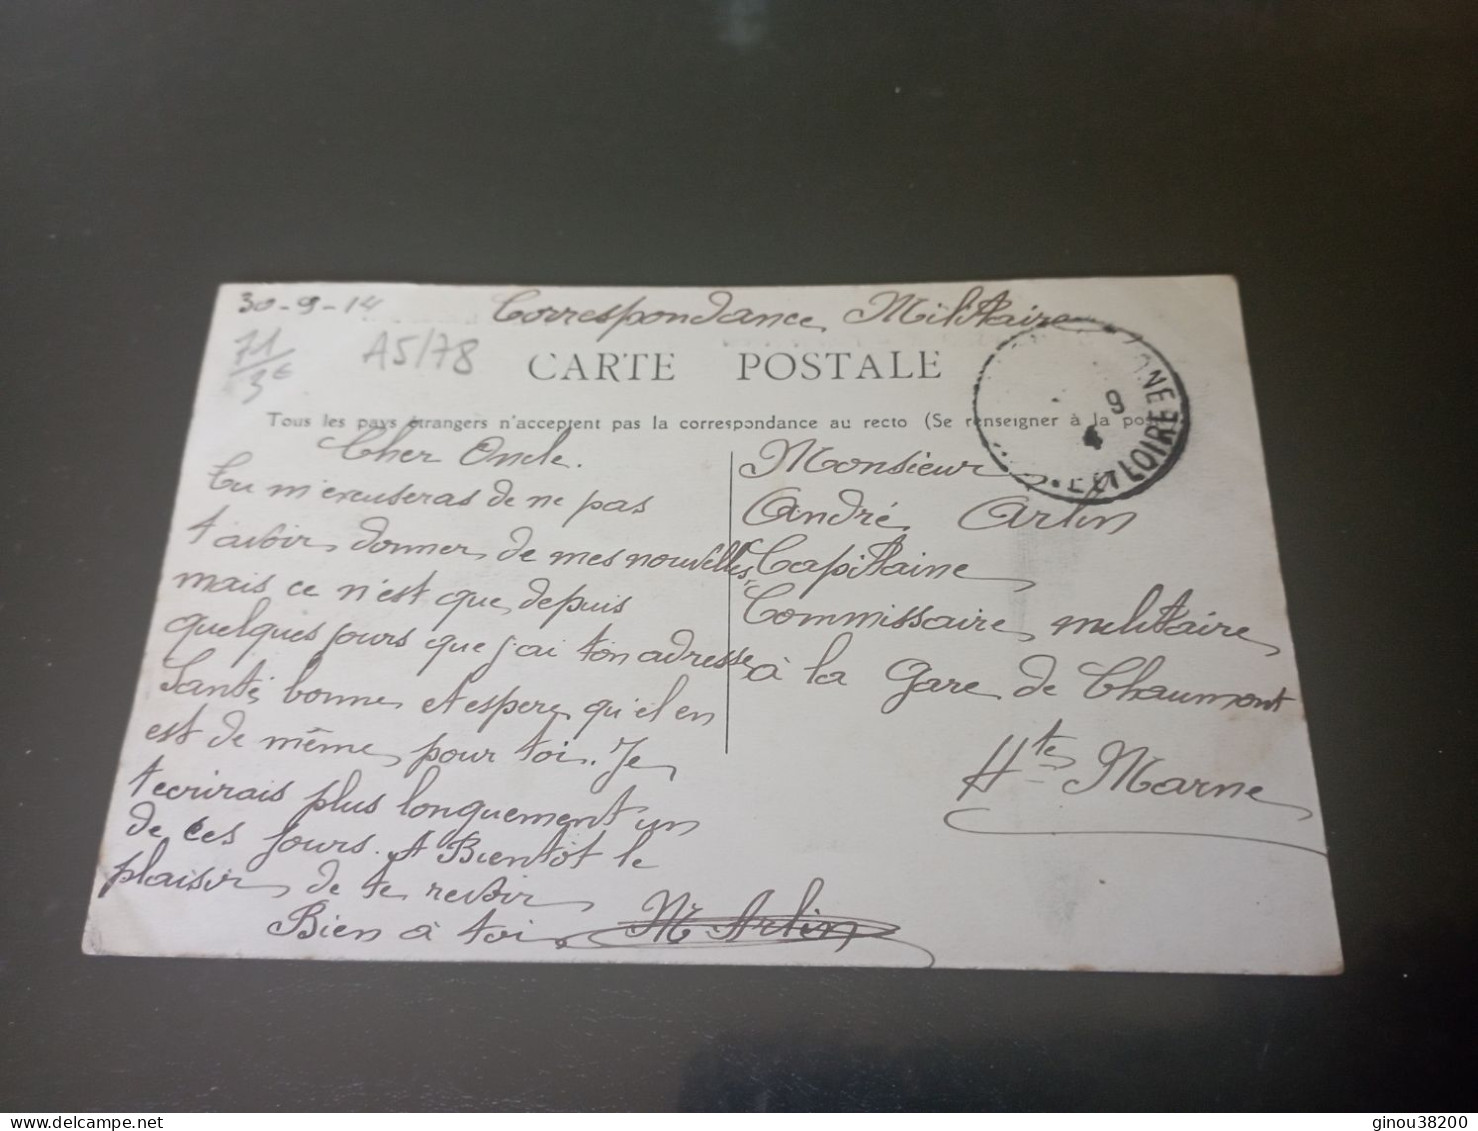 30-9-14
Correspondance Militaire
71
3€
A5/78
CARTE POSTALE
Tous les pays étrangers n'acceptent pas la correspondance au recto (Se renseigner à la pos
9
4
ET LOIRE
Cher Oncle.
Tu m'excuseras de ne pas
t'avoir donner de mes nouvelles,
mais ce n'est que depuis
quelques jours que j'ai ton adresse
Santé bonne et espere qu'il en
est de même pour toi. Je
t'ecrirais plus longuement un
de ces jours. A Bientôt le
plaisir de te revoir
Bien à toi M Arlin
Monsieur
André Arlin
Capitaine
Commissaire militaire
à la gare de Chaumont
Hte Marne
ginou38200